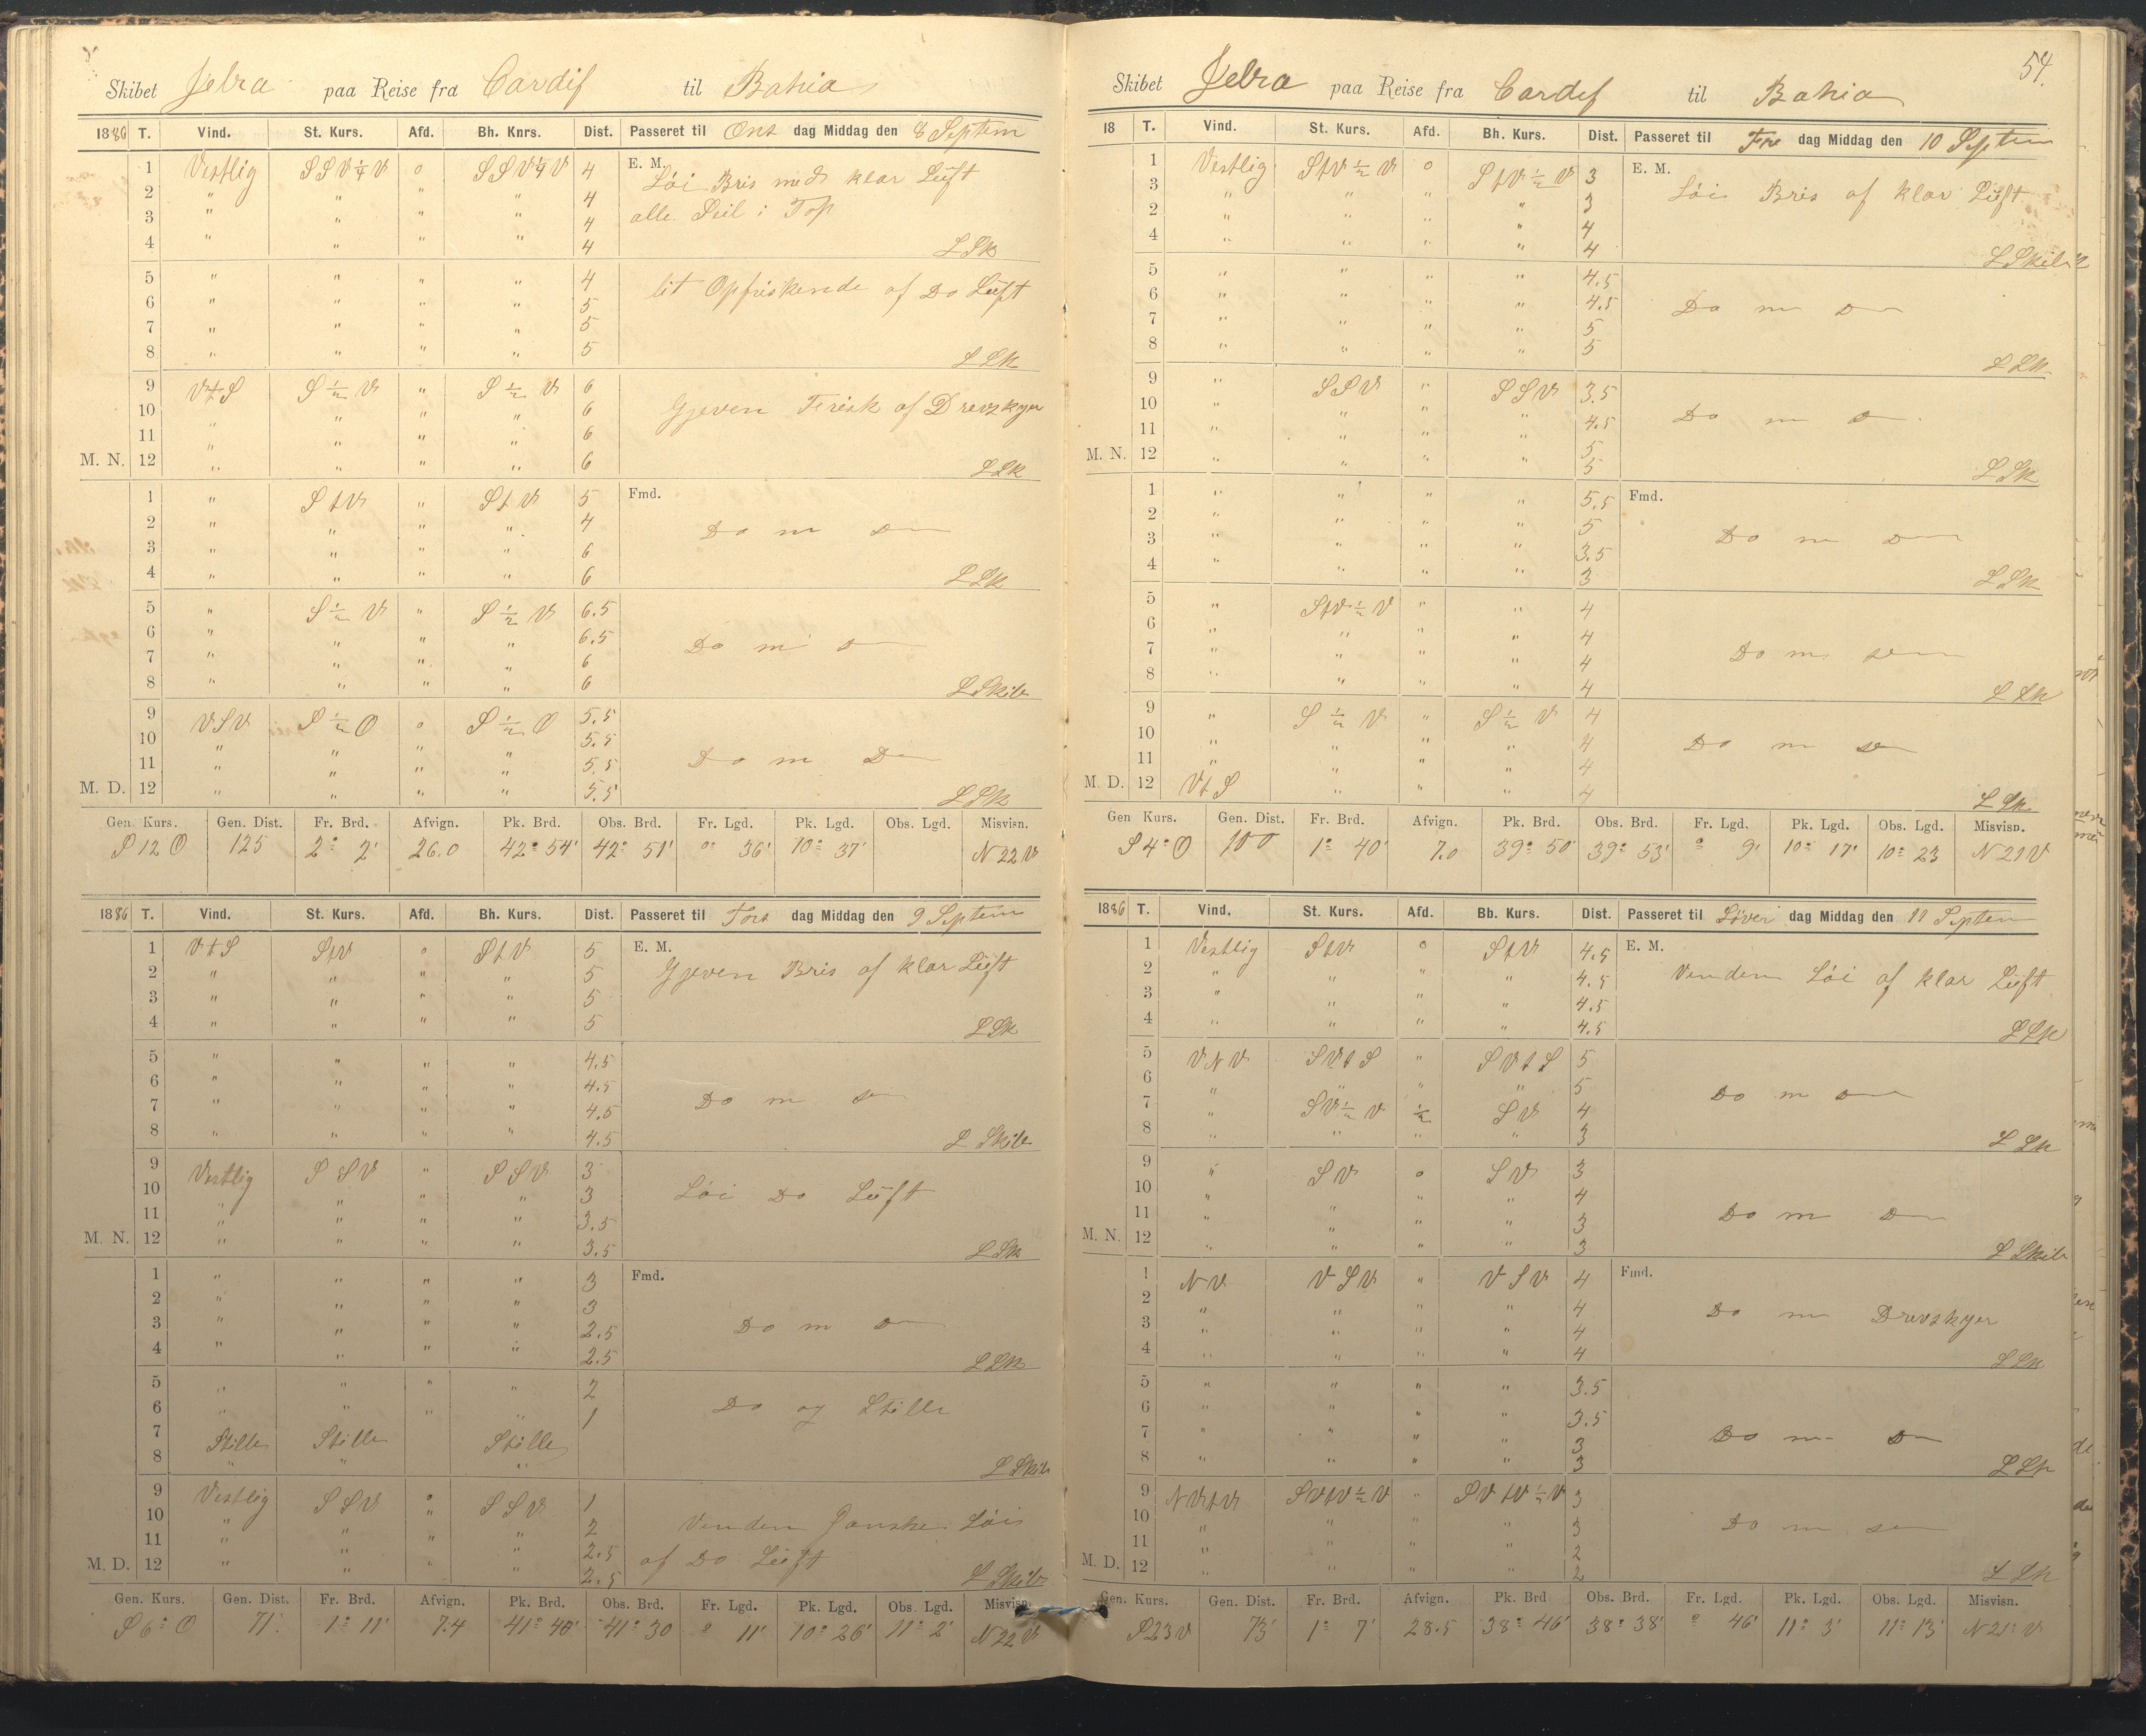 Skibet Jelra paa Reise fra Cardif til Bahia
1886 T. Vind. St. Kurs. Afd. Bh. Knrs. Dist. Passeret til Ons dag Middag den 8 Septem
1 Vestlig SSV¼V 0 SSV¼V 4 E. M. Løi Bris med klar Lüft
2 " " " " 4 alle Seil i Top
3 " " " " 4
4 " " " " 4 LSk
5 " " " " 4 lit Opfriskende af Do Lüft
6 " " " " 5
7 " " " " 5
8 " " " " 5 LSk
9 VtS S½V " S½V 6 Gjeven Frisk af Drevskyer
10 " " " " 6
11 " " " " 6
M. N. 12 " " " " 6 LSk
1 " StV " StV 5 Fmd.
2 " " " " 4 Do m
3 " " " " 6
4 " " " " 6 LSk
5 " S½V " S½V 6.5
6 " " " " 6.5 Do m
7 " " " " 6
8 " " " " 6 LSkib
9 VSV S½O 0 S½O 5.5
10 " " " " 5.5
11 " " " " 5.5 Do m
M. D. 12 " " " " 5.5 LSk
Gen. Kurs. Gen. Dist. Fr. Brd. Afvign. Pk. Brd. Obs. Brd. Fr. Lgd. Pk. Lgd. Obs. Lgd. Misvisn.
S 12 O 125 2° 2' 26.0 42° 54' 42° 51' ° 36' 10° 37' N 22 V
1886 T. Vind. St. Kurs. Afd. Bh. Kurs. Dist. Passeret til Tors dag Middag den 9 Septem
1 VtS StV 0 StV 5 E. M.
2 " " " " 5 Gjeven Bris af klar Lüft
3 " " " " 5
4 " " " " 5 LSk
5 " " " " 4.5
6 " " " " 4.5
7 " " " " 4.5 Do m
8 " " " " 4.5 L Skib
9 Vestlig SSV " SSV 3
10 " " " " 3 Løi Do Lüft
11 " " " " 3.5
M. N. 12 " " " " 3.5 LSk
1 " " " " 3 Fmd.
2 " " " " 3
3 " " " " 2.5 Do m
4 " " " " 2.5 LSk
5 " " " " 2
6 " " " " 1 Do og Stille
7 Stille Stille Stille
8 " " " L Skib
9 Vestlig SSV 0 SSV 1
10 " " " " 2 Vinden Ganske Løi
11 " " " " 2.5 af Do Lüft
M. D. 12 " " " " 2.5 L Skib
Gen. Kurs. Gen. Dist. Fr. Brd. Afvign. Pk. Brd. Obs. Brd. Fr. Lgd. Pk. Lgd. Obs. Lgd. Misvisn.
S 6° O 71' 1° 11' 7.4 41° 40' 41° 30 ° 11' 10° 26' 11° 2' N 22 V
54.
Skibet Jelra paa Reise fra Cardif til Bahia
18 T. Vind. St. Kurs. Afd. Bh. Kurs. Dist. Passeret til Fre dag Middag den 10 Septem
1 Vestlig StV½V 0 StV½V 3 E. M.
3 " " " " 3 Løi Bris af klar Lüft
2 " " " " 4
4 " " " " 4 L Skib
5 " " " " 4.5
6 " " " " 4.5 Do m
7 " " " " 5
8 " " " " 5 LSk
9 " SSV " SSV 3.5
10 " " " " 4.5 Do m
11 " " " " 5
M. N. 12 " " " " 5 LSk
1 " " " " 5.5 Fmd.
2 " " " " 5
3 " " " " 3.5 Do m
4 " " " " 3 LSk
5 " StV½V " " 4
6 " " " " 4
7 " " " " 4 Do m
8 " " " " 4 LSk
9 " S½V " S½V 4
10 " " " " 4 Do m
11 " " " " 4
M. D. 12 VtS " " " 4 LSk
Gen Kurs. Gen. Dist. Fr. Brd. Afvign. Pk. Brd. Obs. Brd. Fr. Lgd. Pk. Lgd. Obs. Lgd. Misvisn.
S 4° O 100 1° 40' 7.0 39° 50' 39° 53' ° 9' 10° 17' 10° 23 N 21 V
1886 T. Vind. St. Kurs. Afd. Bb. Kurs. Dist. Passeret til Löver dag Middag den 11 Septem
1 Vestlig StV 0 StV 4.5 E. M.
2 " " " " 4.5 Vinden Løi af klar Lüft
3 " " " " 4.5
4 " " " " 4.5 LSk
5 VNV SVtS " SVtS 5
6 " " " " 5 Do m
7 " SV½V ½ SV 4
8 " " " " 3 LSk
9 " SV 0 SV 3
10 " " " " 4
11 " " " " 3 Do m
M. N. 12 " " " " 3 L Skib
1 NV VSV " VSV 4 Fmd.
2 " " " " 4 Do m Drevskyer
3 " " " " 4
4 " " " " 4 LSk
5 " " " " 3.5
6 " " " " 3.5
7 " " " " 3 Do m
8 " " " " 3 LSk
9 NVtV SVtV½V " SVtV½V 3
10 " " " " 3 Do m
11 " " " " 2
M. D. 12 " " " " 2 LSk
Gen. Kurs. Gen. Dist. Fr. Brd. Afvign. Pk. Brd Obs. Brd. Fr. Lgd. Pk. Lgd. Obs. Lgd. Misvisn.
S 23 V 73' 1° 7' 28.5 38° 46' 38° 38' ° 46' 11° 3' 11° 13' N 21° V